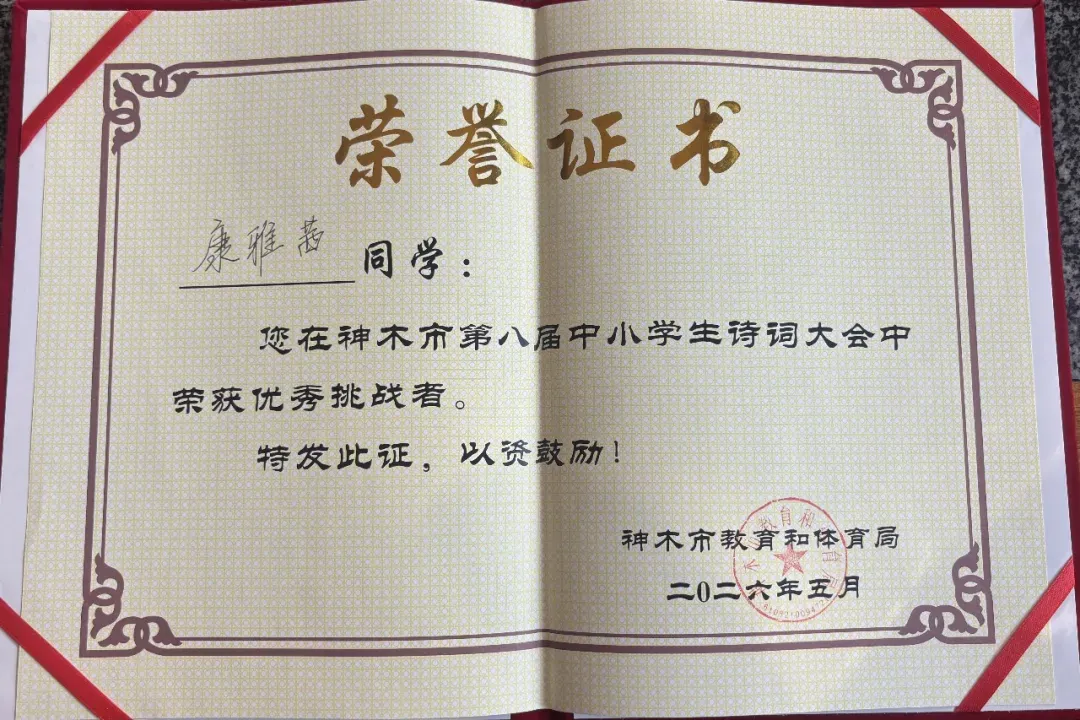 荣誉证书
康雅茜 同学：
您在神木市第八届中小学生诗词大会中
荣获优秀挑战者。
特发此证，以资鼓励！
神木市教育和体育局
二〇二六年五月